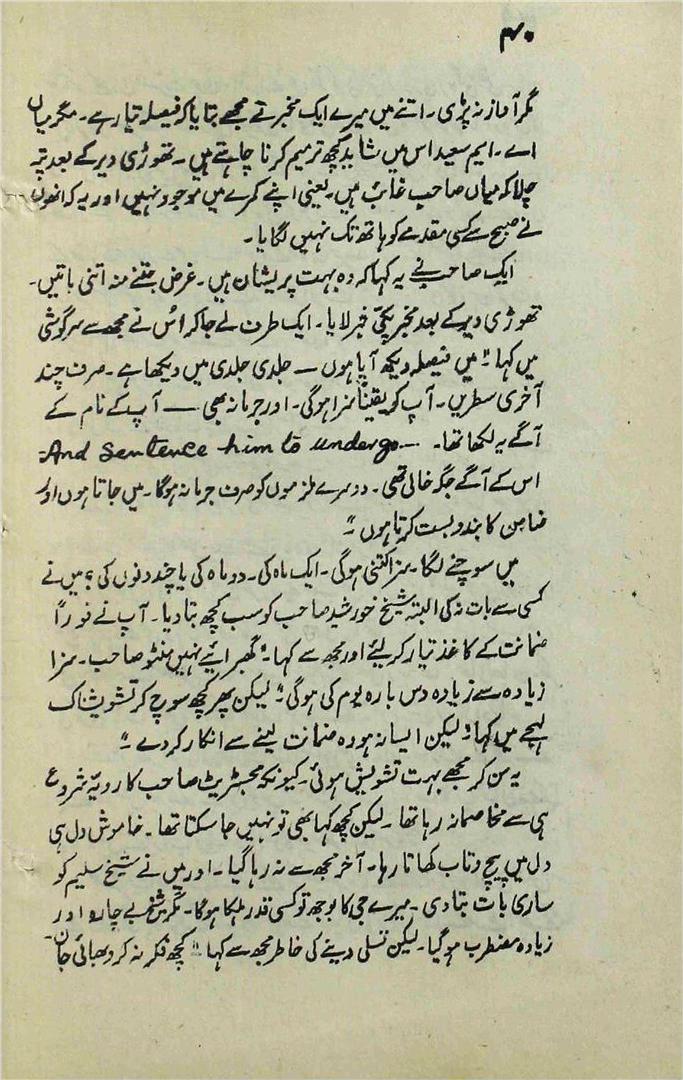 ۴۰
مگر آواز نہ پڑی۔ اتنے میں میرے ایک مخبر نے مجھے بتایا کہ فیصلہ تیار ہے۔ مگر میاں
اے۔ ایم سعید اس میں شاید کچھ ترمیم کرنا چاہتے ہیں۔ تھوڑی دیر کے بعد پتہ
چلا کہ میاں صاحب غائب ہیں۔ یعنی اپنے کمرے میں موجود نہیں اور یہ کہ انھوں
نے صبح سے کسی مقدمے کو ہاتھ تک نہیں لگایا۔
ایک صاحب نے یہ کہا کہ وہ بہت پریشان ہیں۔ غرض جتنے منہ اتنی باتیں۔
تھوڑی دیر کے بعد مخبر پکی خبر لایا۔ ایک طرف لے جا کر اُس نے مجھ سے سرگوشی
میں کہا: "میں فیصلہ دیکھ آیا ہوں — جلدی جلدی میں دیکھا ہے۔ صرف چند
آخری سطریں۔ آپ کو یقیناً سزا ہو گی۔ اور جرمانہ بھی — آپ کے نام کے
آگے یہ لکھا تھا۔ —And sentence him to undergo—
اس کے آگے جگہ خالی تھی۔ دوسرے ملزموں کو صرف جرمانہ ہو گا۔ میں جاتا ہوں اور
ضامن کا بندوبست کرتا ہوں"
میں سوچنے لگا۔ سزا کتنی ہو گی۔ ایک ماہ کی۔ دو ماہ کی یا چند دنوں کی؟ میں نے
کسی سے بات نہ کی البتہ شیخ خورشید صاحب کو سب کچھ بتا دیا۔ آپ نے فوراً
ضمانت کے کاغذ تیار کر لئے اور مجھ سے کہا: "گھبرائیے نہیں منٹو صاحب۔ سزا
زیادہ سے زیادہ دس بارہ یوم کی ہو گی" لیکن پھر کچھ سوچ کر تشویشناک
لہجے میں کہا: "لیکن ایسا نہ ہو وہ ضمانت لینے سے انکار کر دے"
یہ سن کر مجھے بہت تشویش ہوئی۔ کیونکہ مجسٹریٹ صاحب کا رویّہ شروع
ہی سے مخاصمانہ رہا تھا۔ لیکن کچھ کہا بھی تو نہیں جا سکتا تھا۔ خاموش دل ہی
دل میں پیچ و تاب کھاتا رہا۔ آخر مجھ سے نہ رہا گیا۔ اور میں نے شیخ سلیم کو
ساری بات بتا دی۔ میرے جی کا بوجھ تو کسی قدر ہلکا ہو گا۔ مگر شیخ بے چارہ اور
زیادہ مضطرب ہو گیا۔ لیکن تسلی دینے کی خاطر مجھ سے کہا: "کچھ فکر نہ کرو بھائی جان۔